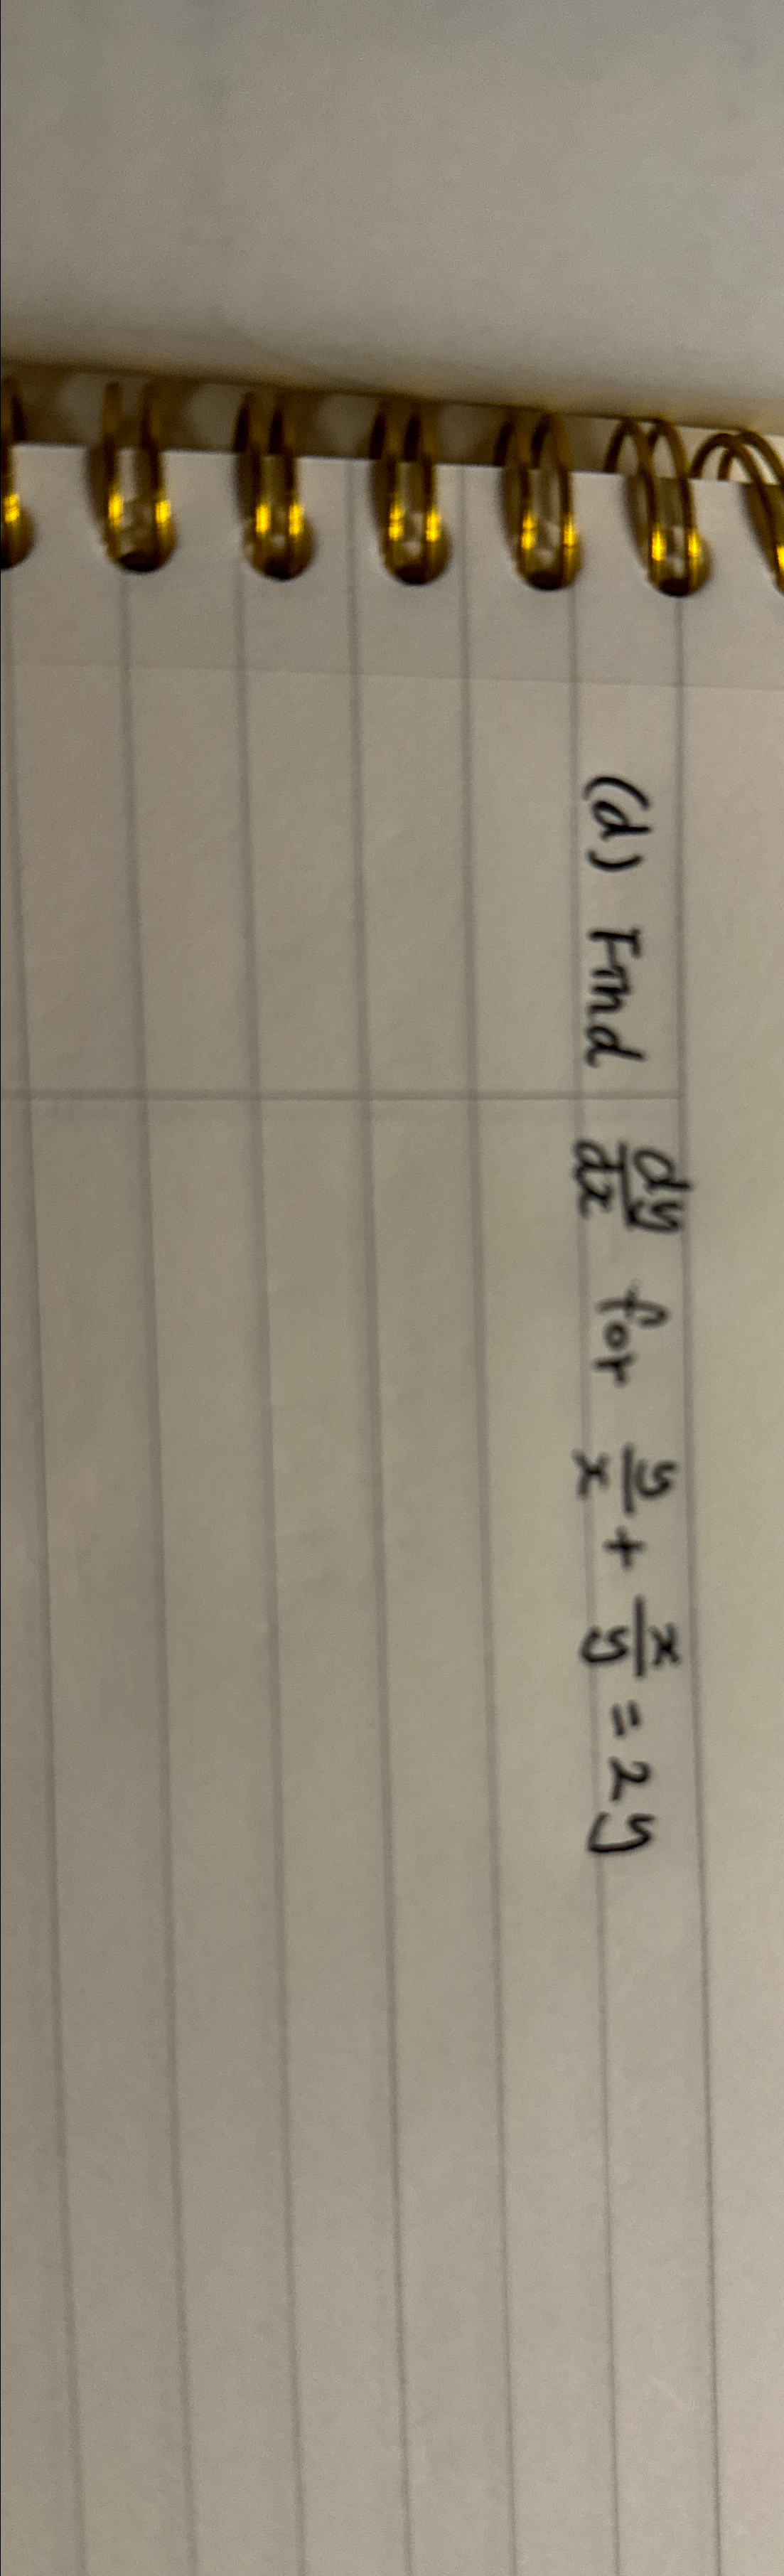 (d) Find dy/dx for y/x + x/y = 2y